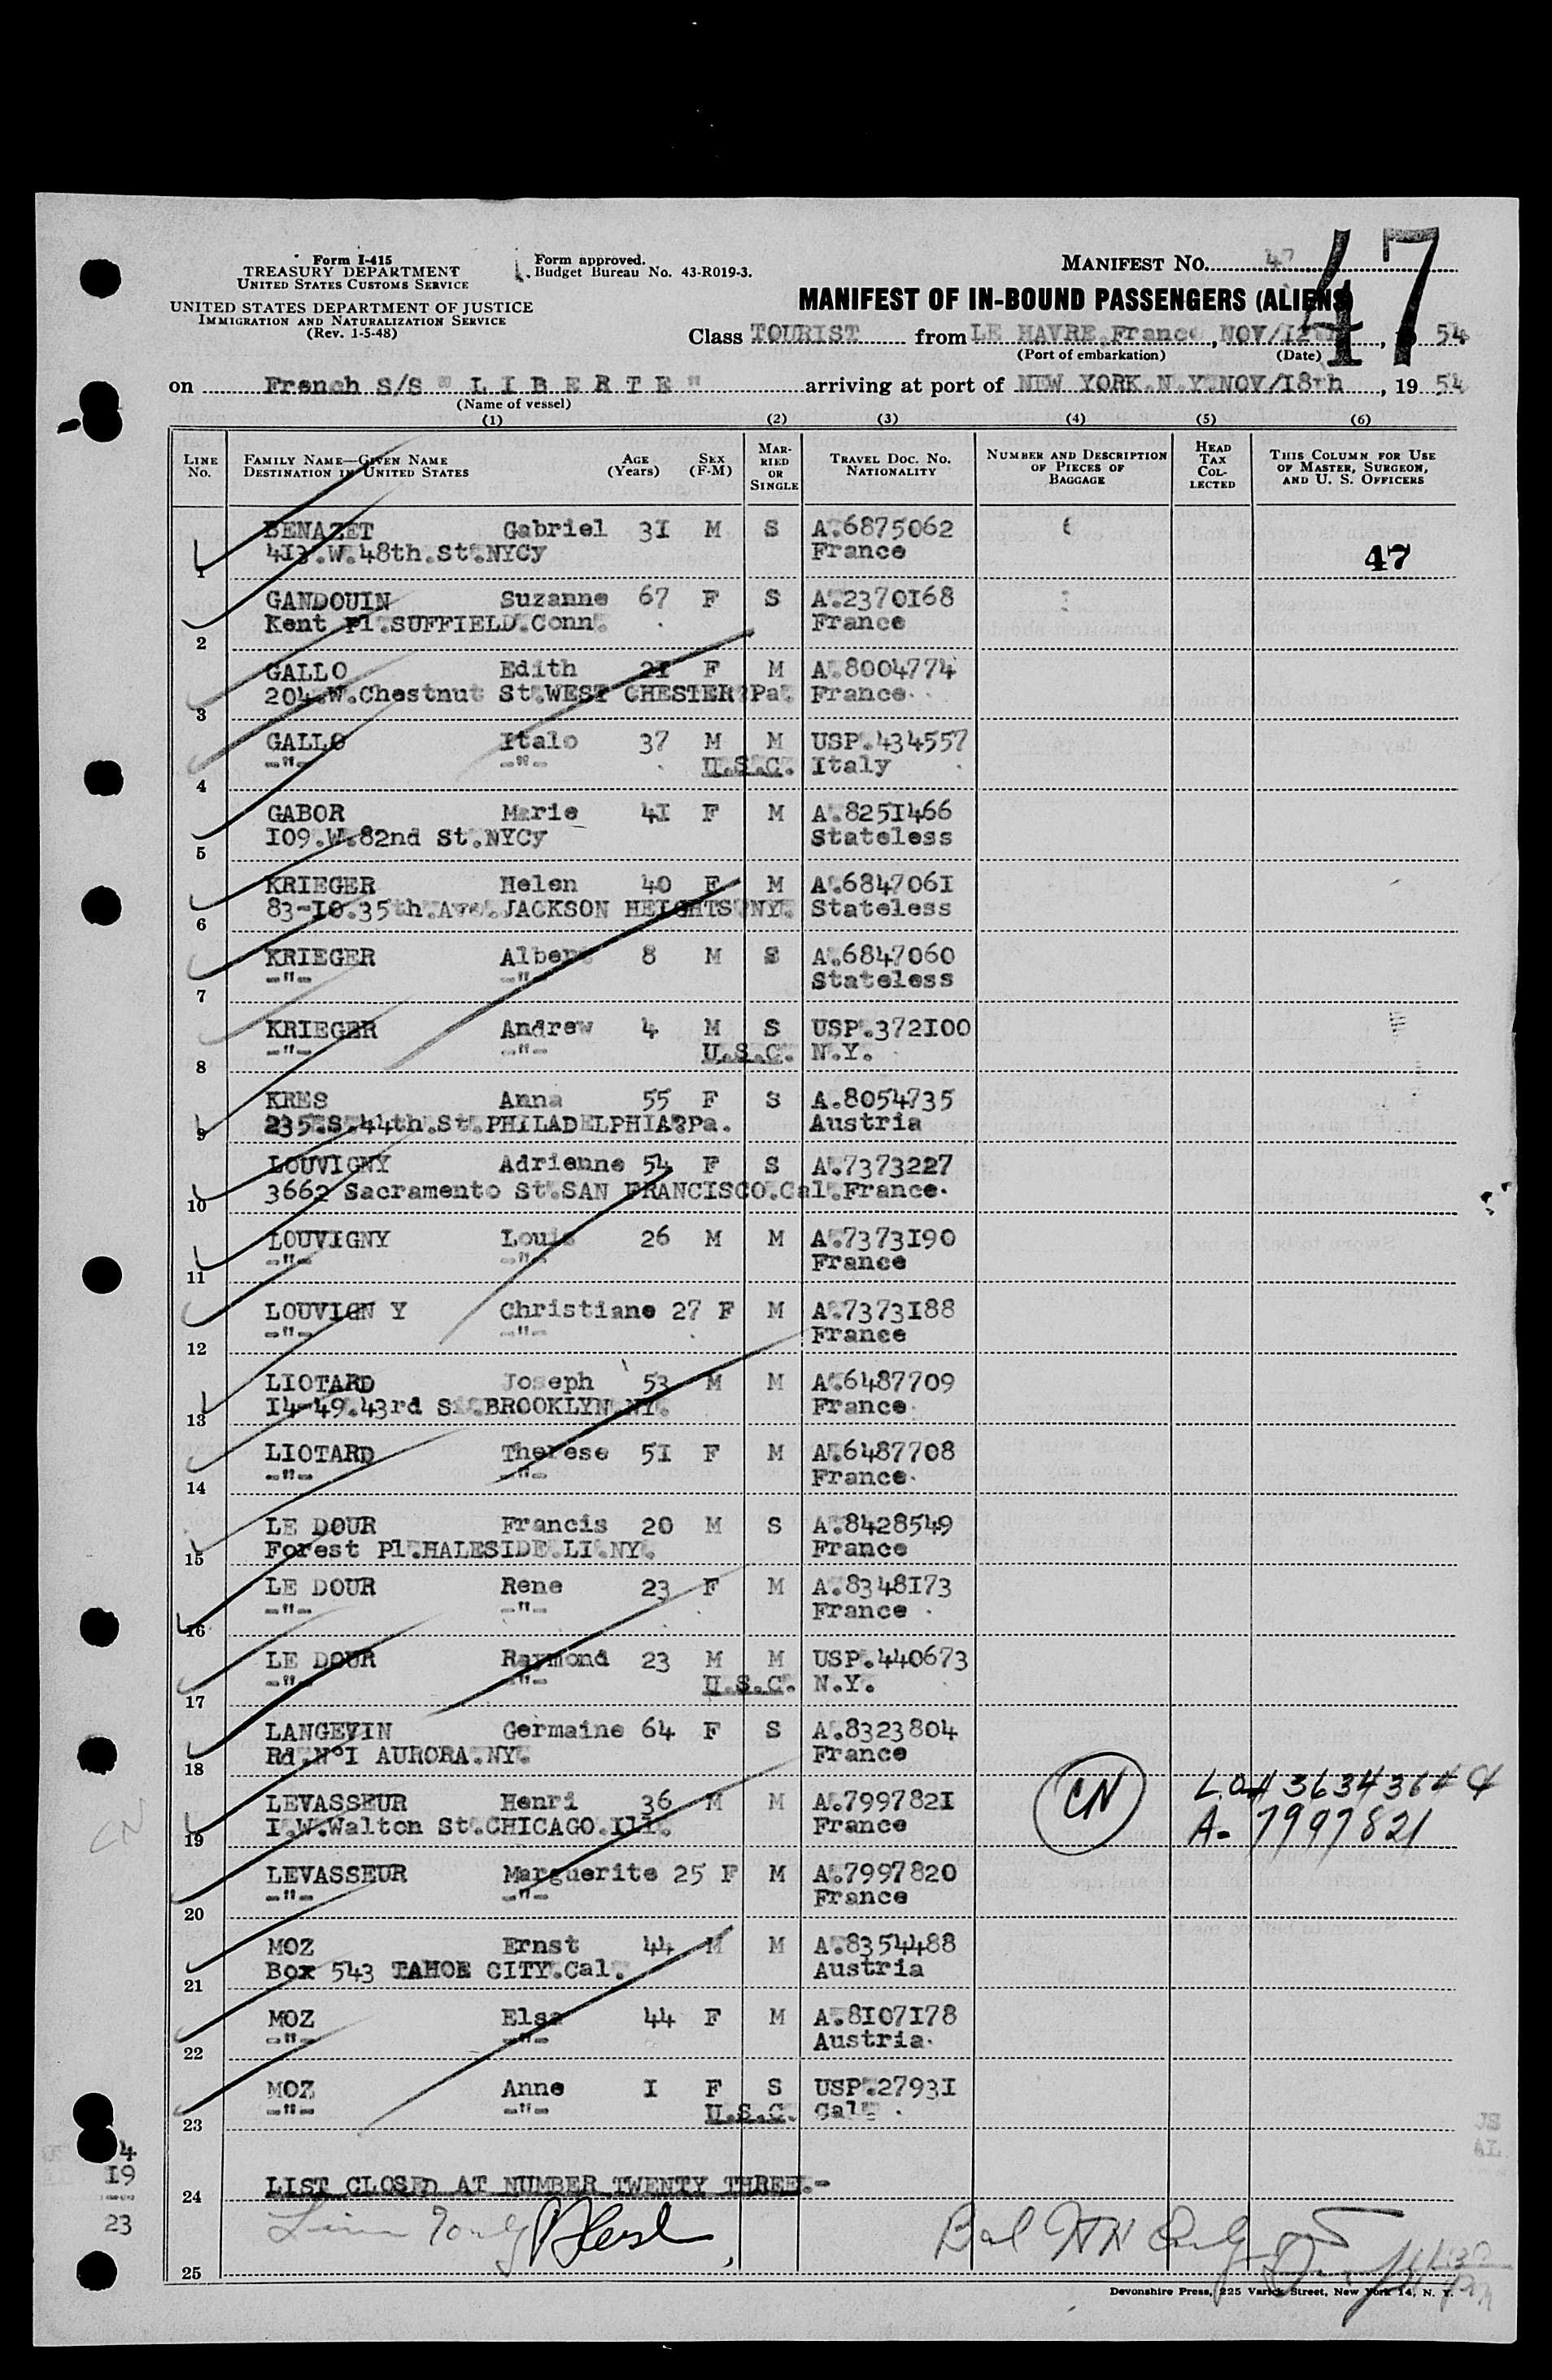 Form I-415
TREASURY DEPARTMENT
UNITED STATES CUSTOMS SERVICE
UNITED STATES DEPARTMENT OF JUSTICE
IMMIGRATION AND NATURALIZATION SERVICE
(Rev. 1-5-48)
Form approved.
Budget Bureau No. 43-R019-3.
MANIFEST NO. 47
47
MANIFEST OF IN-BOUND PASSENGERS (ALIENS)
Class TOURIST from LE HAVRE,France, NOV/12th, 19 54
(Port of embarkation) (Date)
on French S/S " L I B E R T E " arriving at port of NEW YORK.N.Y.NOV/18th, 19 54
(Name of vessel)
(1) (2) (3) (4) (5) (6)
LINE NO. FAMILY NAME—GIVEN NAME DESTINATION IN UNITED STATES AGE (Years) SEX (F-M) MARRIED OR SINGLE TRAVEL DOC. NO. NATIONALITY NUMBER AND DESCRIPTION OF PIECES OF BAGGAGE HEAD TAX COLLECTED THIS COLUMN FOR USE OF MASTER, SURGEON, AND U. S. OFFICERS
BENAZET Gabriel 3I M S A.6875062
1 4I3.W.48th.St.NYCy France 47
GANDOUIN Suzanne 67 F S A.2370I68
2 Kent Pl.SUFFIELD.Conn. France
GALLO Edith 2I F M A.8004774
3 204.W.Chestnut St.WEST CHESTER?Pa. France.
GALLO Italo 37 M M USP.434557
4 -"- -"- U.S.C. Italy
GABOR Marie 4I F M A.825I466
5 I09.W.82nd St.NYCy Stateless
KRIEGER Helen 40 F M A.684706I
6 83-I0.35th.Ave.JACKSON HEIGHTS.NY. Stateless
KRIEGER Albert 8 M S A.6847060
7 -"- -"- Stateless
KRIEGER Andrew 4 M S USP.372I00
8 -"- -"- U.S.C. N.Y.
KRES Anna 55 F S A.8054735
9 235.S.44th.St.PHILADELPHIA?Pa. Austria
LOUVIGNY Adrienne 54 F S A.7373227
10 3662 Sacramento St.SAN FRANCISCO.Cal.France.
LOUVIGNY Louis 26 M M A.7373I90
11 -"- -"- France
LOUVIGN Y Christiane 27 F M A.7373I88
12 -"- -"- France
LIOTARD Joseph 53 M M A.6487709
13 I4-49.43rd St.BROOKLYN.NY. France.
LIOTARD Therese 5I F M A.6487708
14 -"- -"- France.
LE DOUR Francis 20 M S A.8428549
15 Forest Pl.HALESIDE.LI.NY. France
LE DOUR Rene 23 F M A.8348I73
16 -"- -"- France
LE DOUR Raymond 23 M M USP.440673
17 -"- -"- U.S.C. N.Y.
LANGEVIN Germaine 64 F S A.8323804
18 Rd.N°I AURORA.NY. France
LEVASSEUR Henri 36 M M A.799782I CN
19 I.W.Walton St.CHICAGO.Ill. France A- 7997821
LEVASSEUR Marguerite 25 F M A.7997820
20 -"- -"- France
MOZ Ernst 44 M M A.8354488
21 Box 543 TAHOE CITY.Cal. Austria
MOZ Elsa 44 F M A.8I07I78
22 -"- -"- Austria.
MOZ Anne I F S USP.2793I
23 -"- -"- U.S.C. Cal.
CN
4
I9
23
JS
AL
24 LIST CLOSED AT NUMBER TWENTY THREE.-
25
Devonshire Press, 225 Varick Street, New York 14, N. Y.